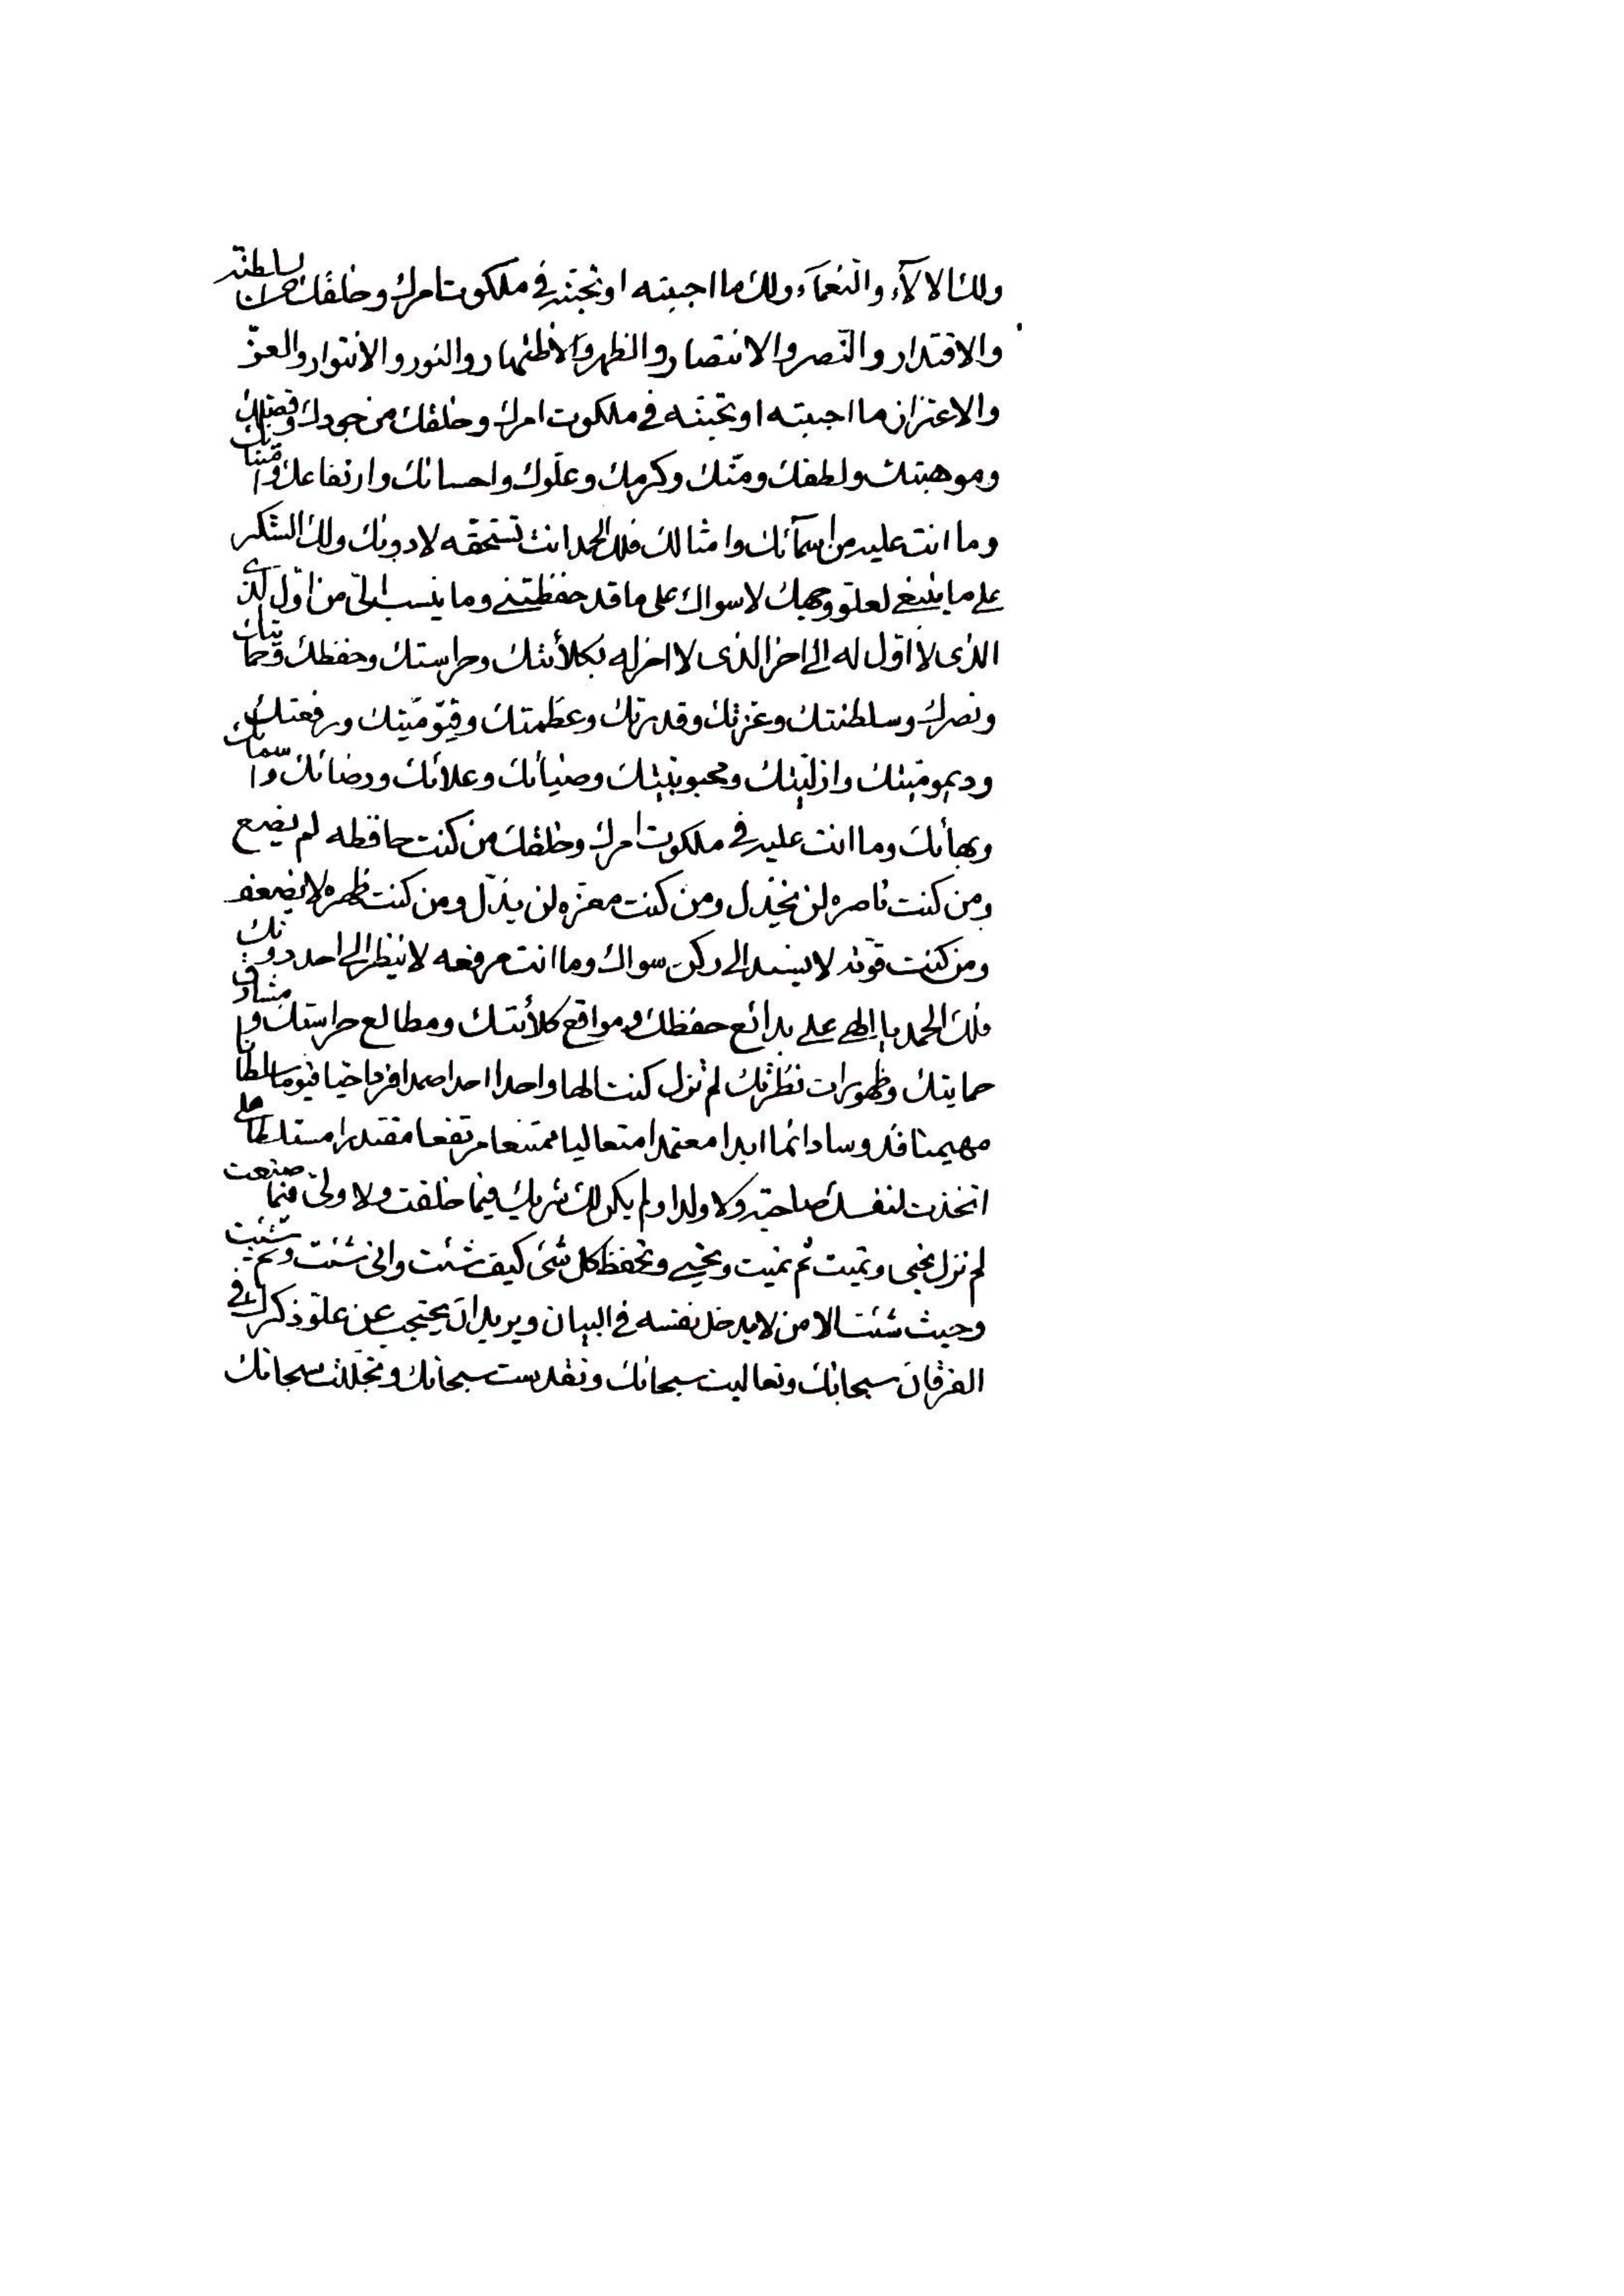 ولك الالآء والنعمآء ولك ما احببته او تحبنه فی ملكوت امرك وخلقك من السلطنة
والاقتدار والنّصر والانتصار والظهر والاظتهار والنور والانتوار والعزّ
والاعتزاز ما احببته او تحبنه فی ملكوت امرك وخلقك من جودك وفضلك
وموهبتك ولطفك ومنّك وكرمك وعلّوك واحسانك وارتفاعك وامتنانك
وما انت عليه من اسمآئك وامثالك فلك الحمد انت تستحقّه لا دونك ولك الشكر
علی ما ينبغی لعلّو وجهك لا سواك علی ما قد حفظتنی وما ينسب الیّ من اوّل الذی
الذی لا اوّل له الی اخر الذی لا اخر له بكلأئتك وحراستك وحفظك وحمايتك
ونصرك وسلطنتك وعزتك وقدرتك وعظمتك وقيّوميّتك ورفعتك
وديموميّتك وازليّتك ومحبوبيّتك وضيائك وعلائك ورضائك واسمائك
وبهائك وما انت عليه فی ملكوت امرك وخلقك من كنت حافظه لم يضيع
ومن كنت ناصره لن يخذل ومن كنت معزّه لن يذلّ ومن كنت ظهره لا يضعف
ومن كنت قوّته لا يستند الی ركن سواك وما انت مرفعه لا ينظر الی احد دونك
فلك الحمد يا الهی علی بدائع حفظك ومواقع كلأئتك ومطالع حراستك ومشارق
حمايتك وظهورات نظرتك لم تزل كنت الها واحدا احدا صمدا فردا حيا قيوما سلطانا
مهيمنا قدوسا دائما ابدا معتمدا متعاليا ممتنعا مرتفعا مقتدرا متسلطا ما
اتخذت لنفسك صاحبة ولا ولدا ولم يكن لك شريك فيما خلقت ولا ولیّ فيما صنعت
لم تزل تحيی وتميت ثم تميت وتحيی وتحفظ كل شیء كيف شئت وانی شئت ومم شئت
وحيث شئت الا من لا يدخل نفسه فی البيان ويريد ان يحتجب عن علّو ذكرك فی
الفرقان سبحانك وتعاليت سبحانك وتقدست سبحانك وتجلّلت سبحانك